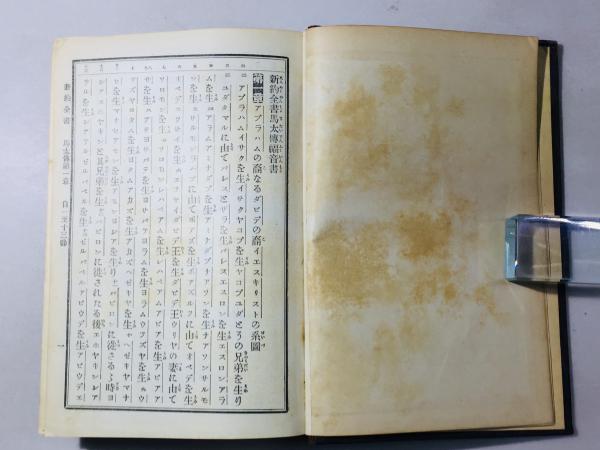 新約全書馬太傳福音書
第一章 アブラハムの裔なるダビデの裔イエスキリストの系圖
アブラハムイサクを生イサクヤコブを生ヤコブユダとその兄弟を生り
ユダタマルに由てパレスとザラを生パレスエスロンを生エスロンアラ
ムを生アラムアミナダブを生アミナダブナアソンを生ナアソンサルモ
ンを生サルモンラハブに由てボアズを生ボアズルツに由てオベデを生
オベデエッサイを生エッサイダビデ王を生ダビデ王ウリヤの妻に由て
ソロモンを生ソロモンレハベアムを生レハベアムアビアを生アビアア
サを生アサヨサパテを生ヨサパテヨラムを生ヨラムウズヤを生ウ
ズヤヨタムを生ヨタムアカズを生アカズヘゼキヤを生ヘゼキヤマナ
セを生マナセアモンを生アモンヨシアを生り バビロンに徙さるゝ時ヨ
シアエホヤキンと其兄弟を生 バビロンに徙されたる後エホヤキンシア
テルを生シアテルゼルバベルを生ゼルバベルアビウデを生アビウデエ
新約全書 馬太傳第一章 自一至十三節
一